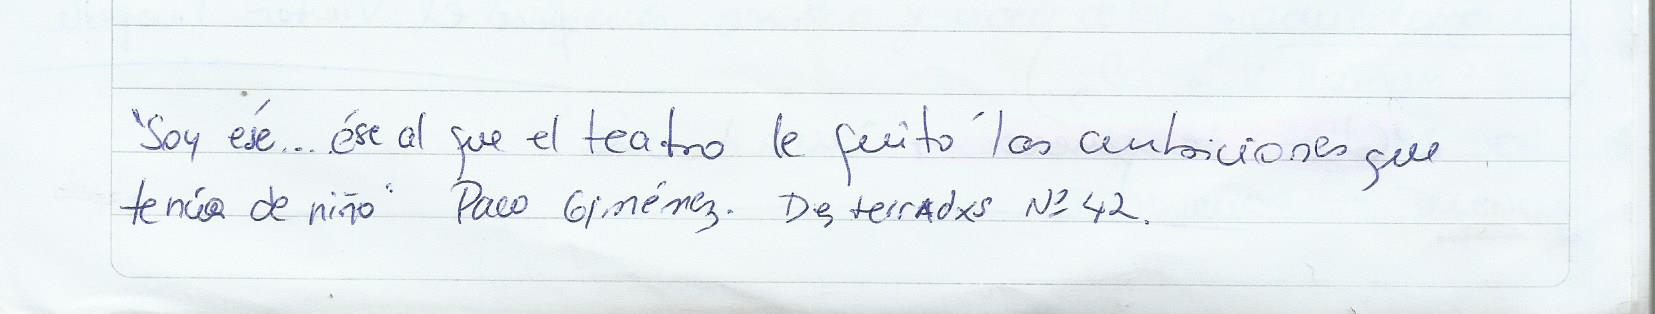 "Soy ésé... ése al que el teatro le quitó las ambiciones que
tenía de niño" Paco Giménez. Desterradxs Nº 42.